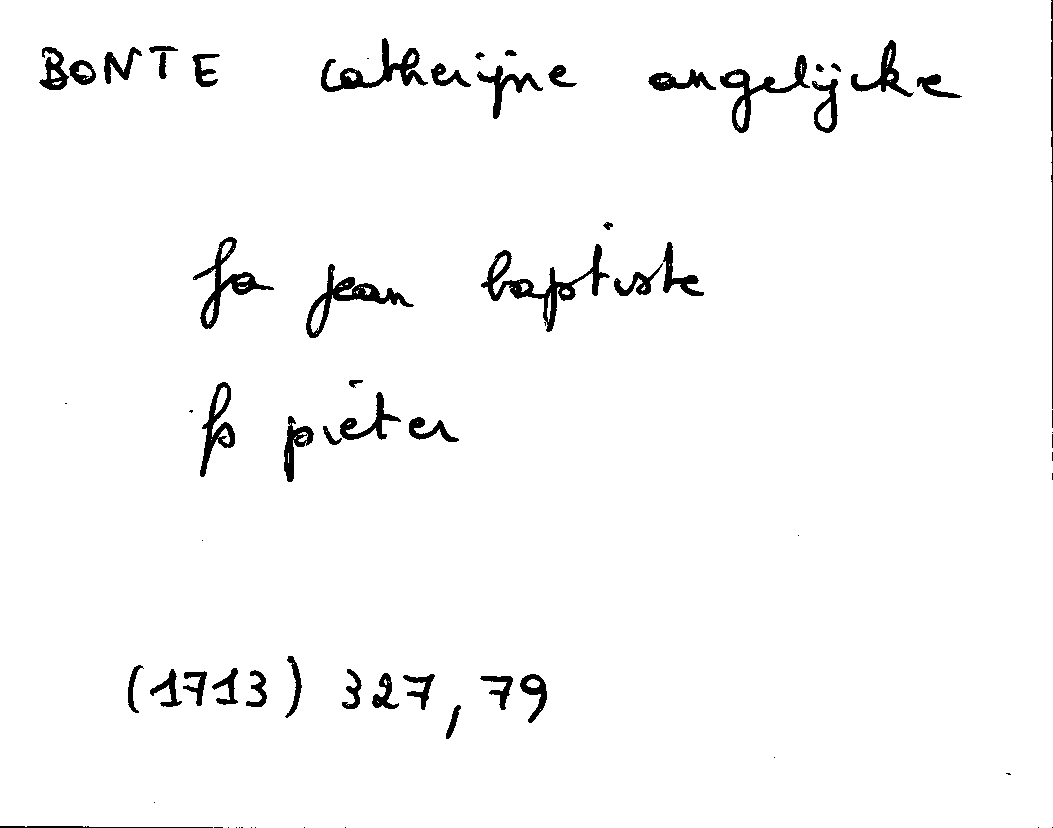 BONTE catherijne angelijcke
fa jean baptiste
fs pieter
(1713) 327, 79